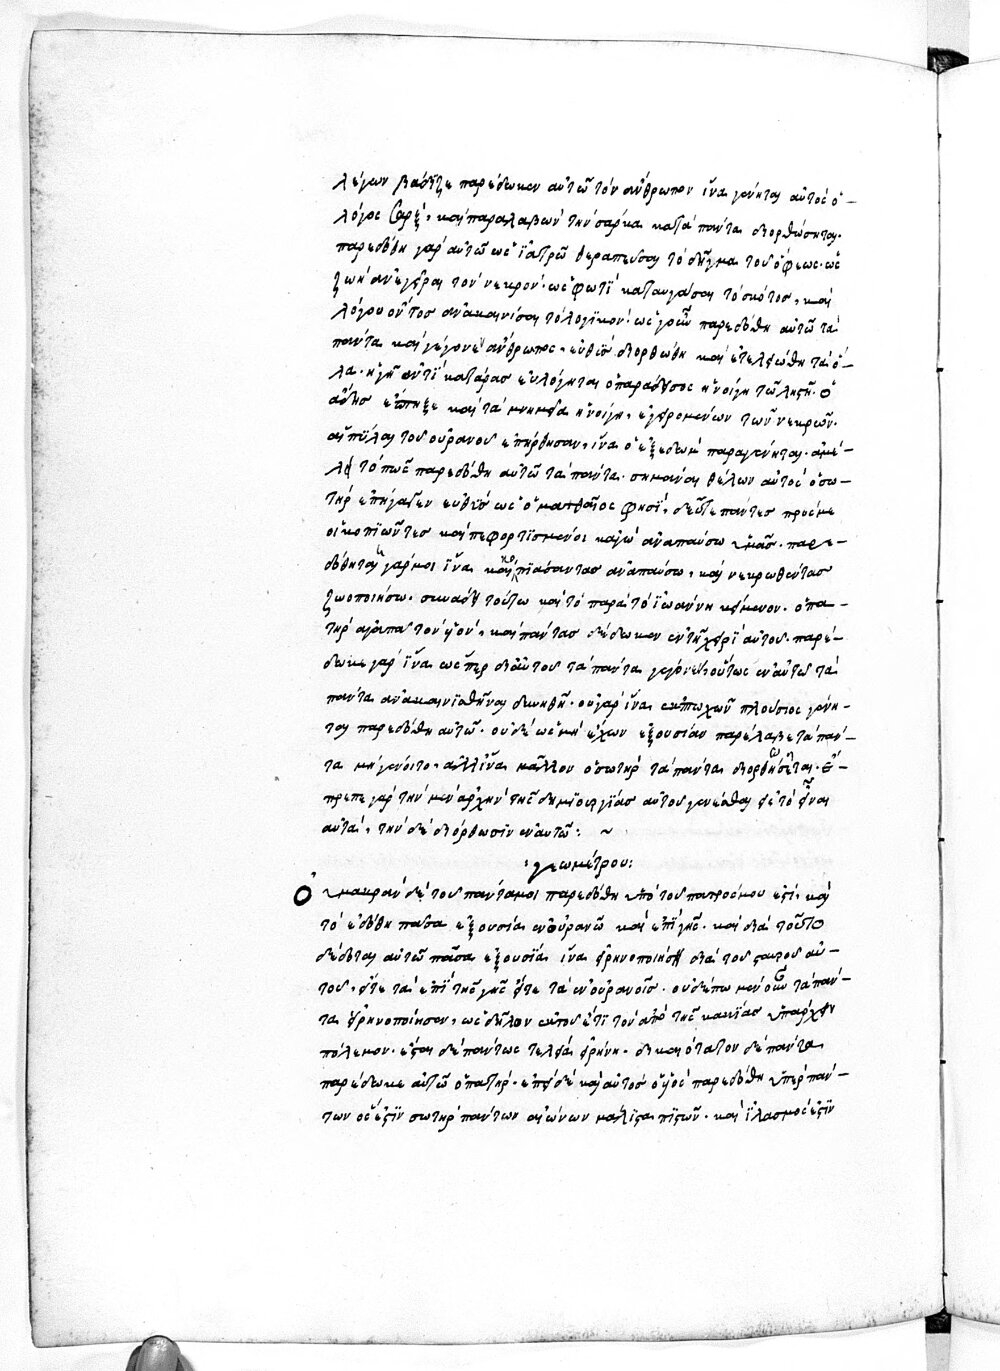 λέγων βάδιζε παρέδωκεν αὐτῶ τὸν ἄνθρωπον ἵνα γένηται αὐτὸς ὁ
λόγος σὰρξ, καὶ παραλαβὼν τὴν σάρκα κατὰ πάντα διορθώσηται.
παρεδόθη γὰρ αὐτῶ ὡς ἰατρῶ θεραπεύσαι τὸ δῆγμα τοῦ ὄφεως. ὡς
ζωὴ ἀνεγεῖραι τὸν νεκρόν. ὡς φωτὶ καταυγάσαι τὸ σκότος, καὶ
λόγου ὄντος ἀνακαινίσαι τὸ λογικόν. ὡς γοῦν παρεδόθη αὐτῶ τὰ
πάντα καὶ γέγονεν ἄνθρωπος, εὐθὺς διορθώθη καὶ ἐτελειώθη τὰ ὅ-
λα. ἡ γῆ ἀντὶ κατάρας εὐλόγηται ὁ παράδεισος ἠνοίγη τῶ ληστῆ. ὁ
ἅδης ἔπτηξε καὶ τὰ μνημεῖα ἠνοίγη, ἐγειρομένων τῶν νεκρῶν.
αἱ πύλαι τοῦ οὐρανοῦ ἐπήρθησαν, ἵνα ὁ ἐξ ἐδὼμ παραγένηται. ἀμέ-
λει τὸ πῶς παρεδόθη αὐτῶ τὰ πάντα. σημᾶναι θέλων αὐτὸς ὁ σω-
τὴρ ἐπήγαγεν εὐθὺς ὡς ὁ ματθαῖος φησὶ, δεῦτε πάντες πρός με
οἱ κοπιῶντες καὶ πεφορτισμένοι κἀγὼ ἀναπαύσω ὑμᾶς. παρε-
δόθησαν γάρ μοι ἵνα κοπιάσαντας ἀναπαύσω, καὶ νεκρωθέντας
ζωοποιήσω. συνάδει τούτω καὶ τὸ παρὰ τὸ ἰωάννη κείμενον. ὁ πα-
τὴρ ἀγαπᾶ τὸν υἱὸν, καὶ πάντας δέδωκεν ἐν τῆ χειρὶ αὐτοῦ. παρέ-
δωκε γὰρ ἵνα ὥσπερ δι αὐτοῦ τὰ πάντα γεγόνει, οὕτως ἐν αὐτῶ τὰ
πάντα ἀνακαινισθῆναι δυνηθῆ. οὐ γὰρ ἵνα ἐκ πτωχῶν πλούσιος γένη-
ται παρεδόθη αὐτῶ. οὐδὲ ὡς μὴ ἔχων ἐξουσίαν παρέλαβε τὰ πάν-
τα μὴ γένοιτο, ἀλλ ἵνα μᾶλλον ὁ σωτὴρ τὰ πάντα διορθώσηται. ἔ-
πρεπε γὰρ τὴν μὲν ἀρχὴν τῆς δημιουργίας αὐτοῦ γενέσθαι εἰς τὸ εἶναι
αὐτὰ, τὴν δὲ διόρθωσιν ἐν αὐτῶ:
γεωμέτρου:
Οὐ μακρὰν δὲ τοῦ πάντα μοι παρεδόθη ὑπὸ τοῦ πατρός μου ἐστὶ, καὶ
τὸ ἐδόθη πᾶσα ἐξουσία ἐν οὐρανῶ καὶ ἐπὶ γῆς. καὶ διὰ τοῦτο
δέδοται αὐτῶ πᾶσα ἐξουσία ἵνα εἰρηνοποιήση διὰ τοῦ σταυροῦ αὐ-
τοῦ, εἴτε τὰ ἐπὶ τῆς γῆς εἴτε τὰ ἐν οὐρανοῖς. οὐδέπω μὲν οὖν τὰ πάν-
τα εἰρηνοποίησεν, ὡς δῆλον ἐκ τοῦ ἔτι τὸν ἀπὸ τῆς κακίας ὑπάρχειν
πόλεμον. ἔσται δὲ πάντως τελεία εἰρήνη. δικαιότατον δὲ πάντα
παρέδωκε αὐτῶ ὁ πατὴρ. ἐπεὶ δὲ καὶ αὐτὸς ὁ υἱὸς παρεδόθη ὑπὲρ πάν-
των ὅς ἐστιν σωτὴρ πάντων αἰώνων μάλιστα πιστῶν. καὶ ἱλασμός ἐστιν